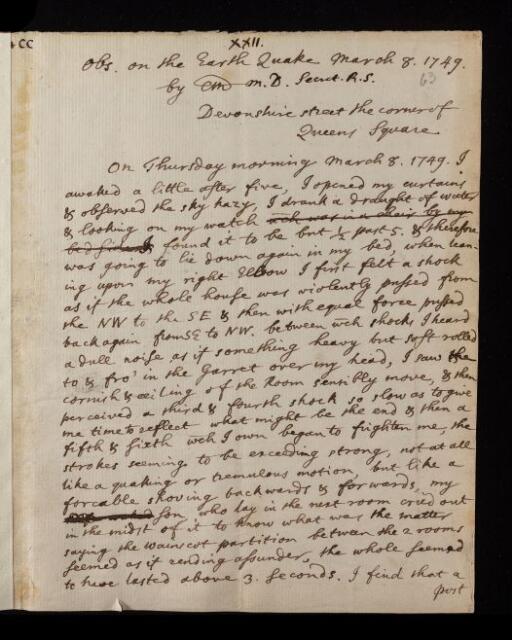 CC
XXII.
Obs. on the Earth Quake March 8. 1749.
63
by CM M.D. Secret. R.S.
Devonshire street the corner of
Queens Square
On Thursday morning March 8. 1749. I
awaked a little after five, I opened my curtains
& observed the sky hazy, I drank a draught of water
& looking on my watch wch was in a chair by my
bed found it to be but ½ past 5. & therefore
was going to lie down again in my bed, when lean-
ing upon my right Elbow I first felt a shock
as if the whole house was violently pushed from
the NW to the SE & then with equal force pushed
back again from SE to NW. between wch shocks I heard
a dull noise as if something heavy but soft rolled
to & fro' in the Garret over my head, I saw the
cornish & ceiling of the Room sensibly move, & then
perceived a third & fourth shock so slow as to give
me time to reflect what might be the end & than a
fifth & sixth wch I own began to frighten me, the
strokes seeming to be exceeding strong, not at all
like a quaking or tremulous motion, but like a
forcable shoving backwards & forwards, my
son who lay in the next room cried out
in the midst of it to know what was the matter
saying the wainscot partition between the 2 rooms
seemed as if rending assunder, the whole seemed
to have lasted above 3. seconds. I find that a
post